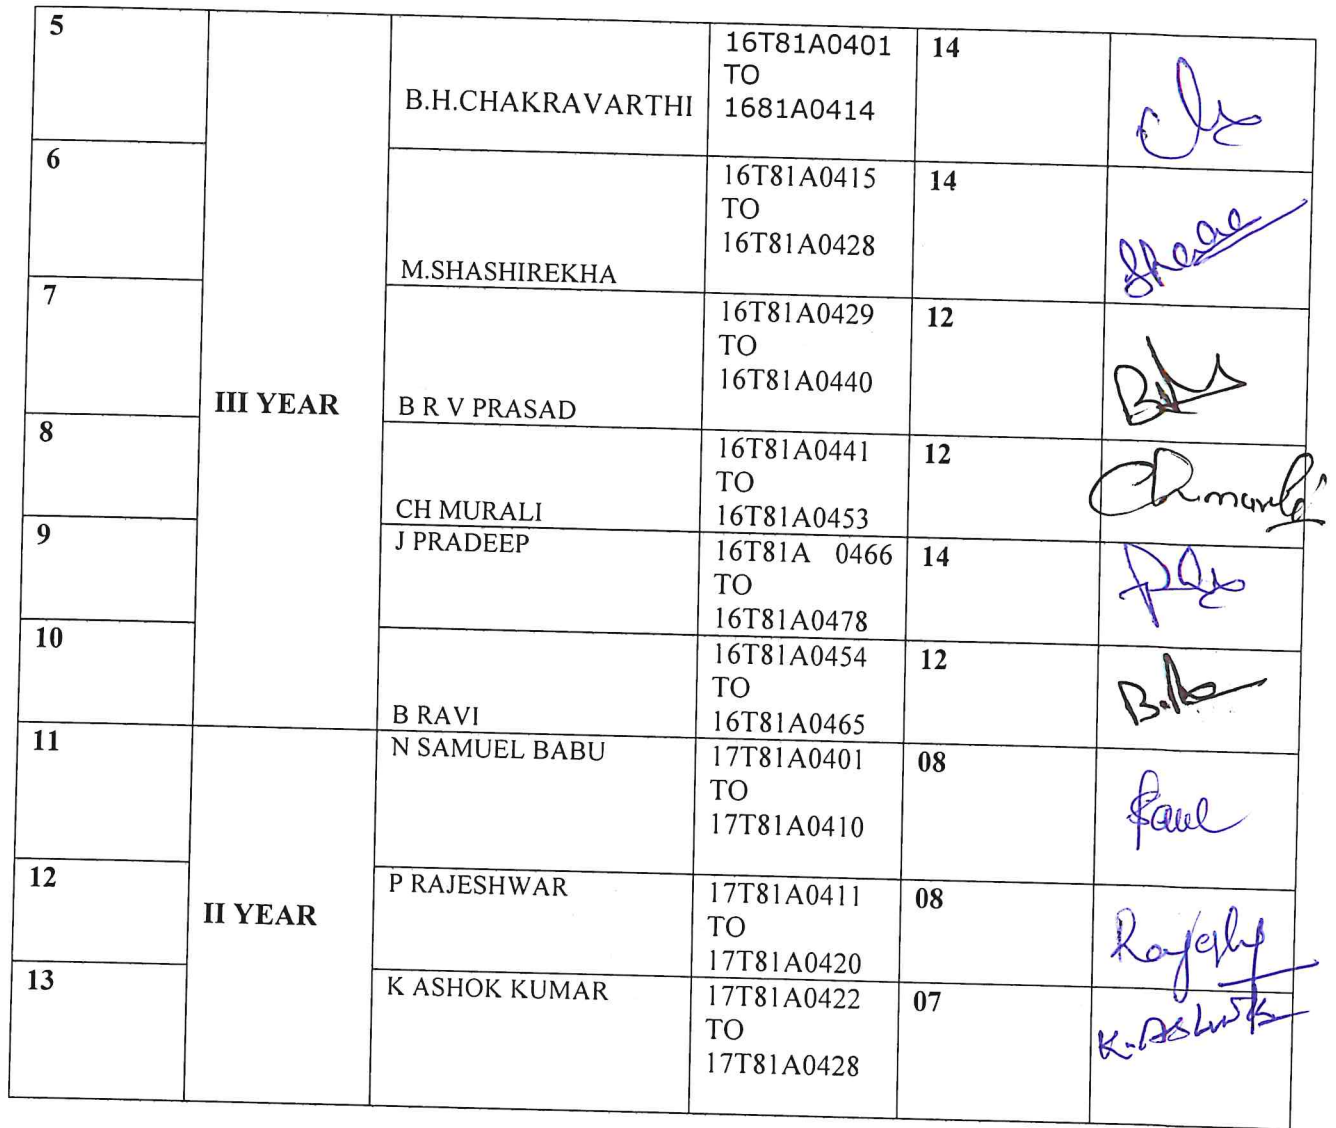 5
B.H.CHAKRAVARTHI
16T81A0401
TO
1681A0414
14
6
M.SHASHIREKHA
16T81A0415
TO
16T81A0428
14
7
III YEAR
B R V PRASAD
16T81A0429
TO
16T81A0440
12
8
CH MURALI
16T81A0441
TO
16T81A0453
12
9
J PRADEEP
16T81A 0466
TO
16T81A0478
14
10
B RAVI
16T81A0454
TO
16T81A0465
12
11
N SAMUEL BABU
17T81A0401
TO
17T81A0410
08
12
II YEAR
P RAJESHWAR
17T81A0411
TO
17T81A0420
08
13
K ASHOK KUMAR
17T81A0422
TO
17T81A0428
07
K.Ashok